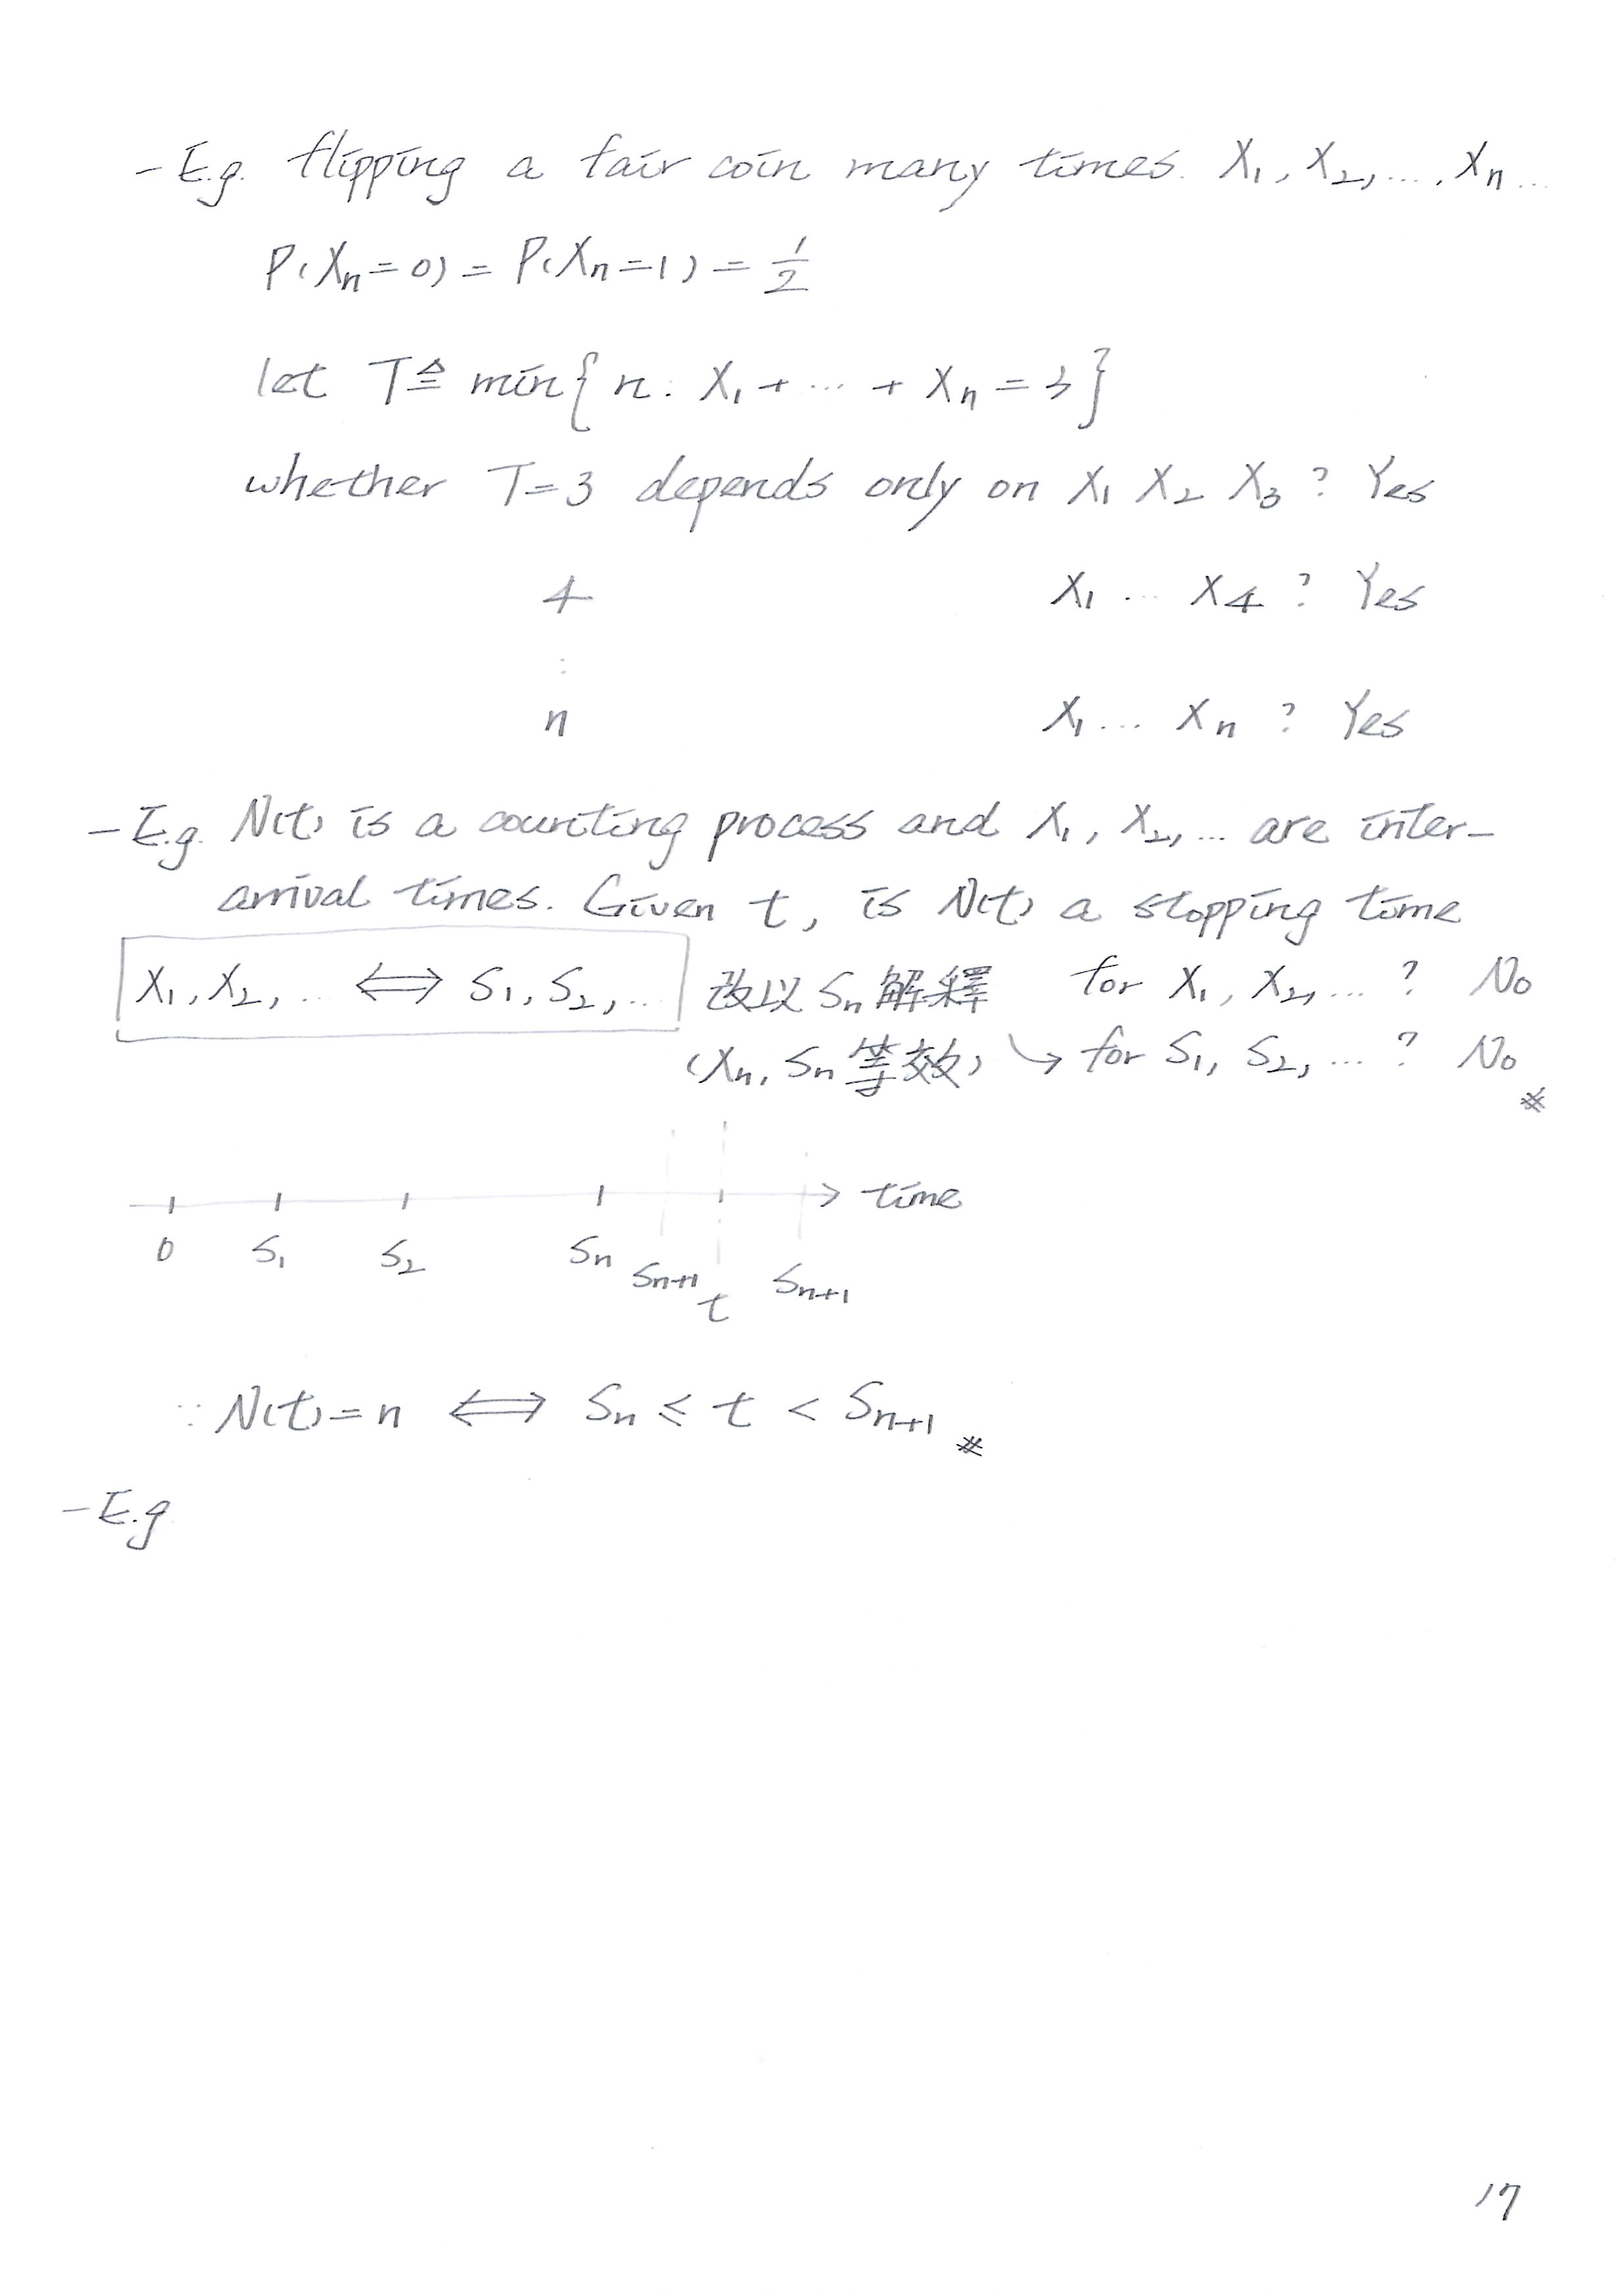 - E.g. flipping a fair coin many times. X₁, X₂, ..., Xₙ ...
P(Xₙ = 0) = P(Xₙ = 1) = 1/2
let T ≜ min{ n : X₁ + ... + Xₙ = 3 }
whether T = 3 depends only on X₁ X₂ X₃ ? Yes
4 X₁ ... X₄ ? Yes
:
n X₁ ... Xₙ ? Yes
- E.g. N(t) is a counting process and X₁, X₂, ... are inter-
arrival times. Given t, is N(t) a stopping time
X₁, X₂, ... ⟺ S₁, S₂, ... 改以 Sₙ 解釋 for X₁, X₂, ... ? No
(Xₙ, Sₙ 等效) ↘ for S₁, S₂, ... ? No
#
→ time
0 S₁ S₂ Sₙ Sₙ₊₁ t Sₙ₊₁
∵ N(t) = n ⟺ Sₙ ≤ t < Sₙ₊₁ #
- E.g
17